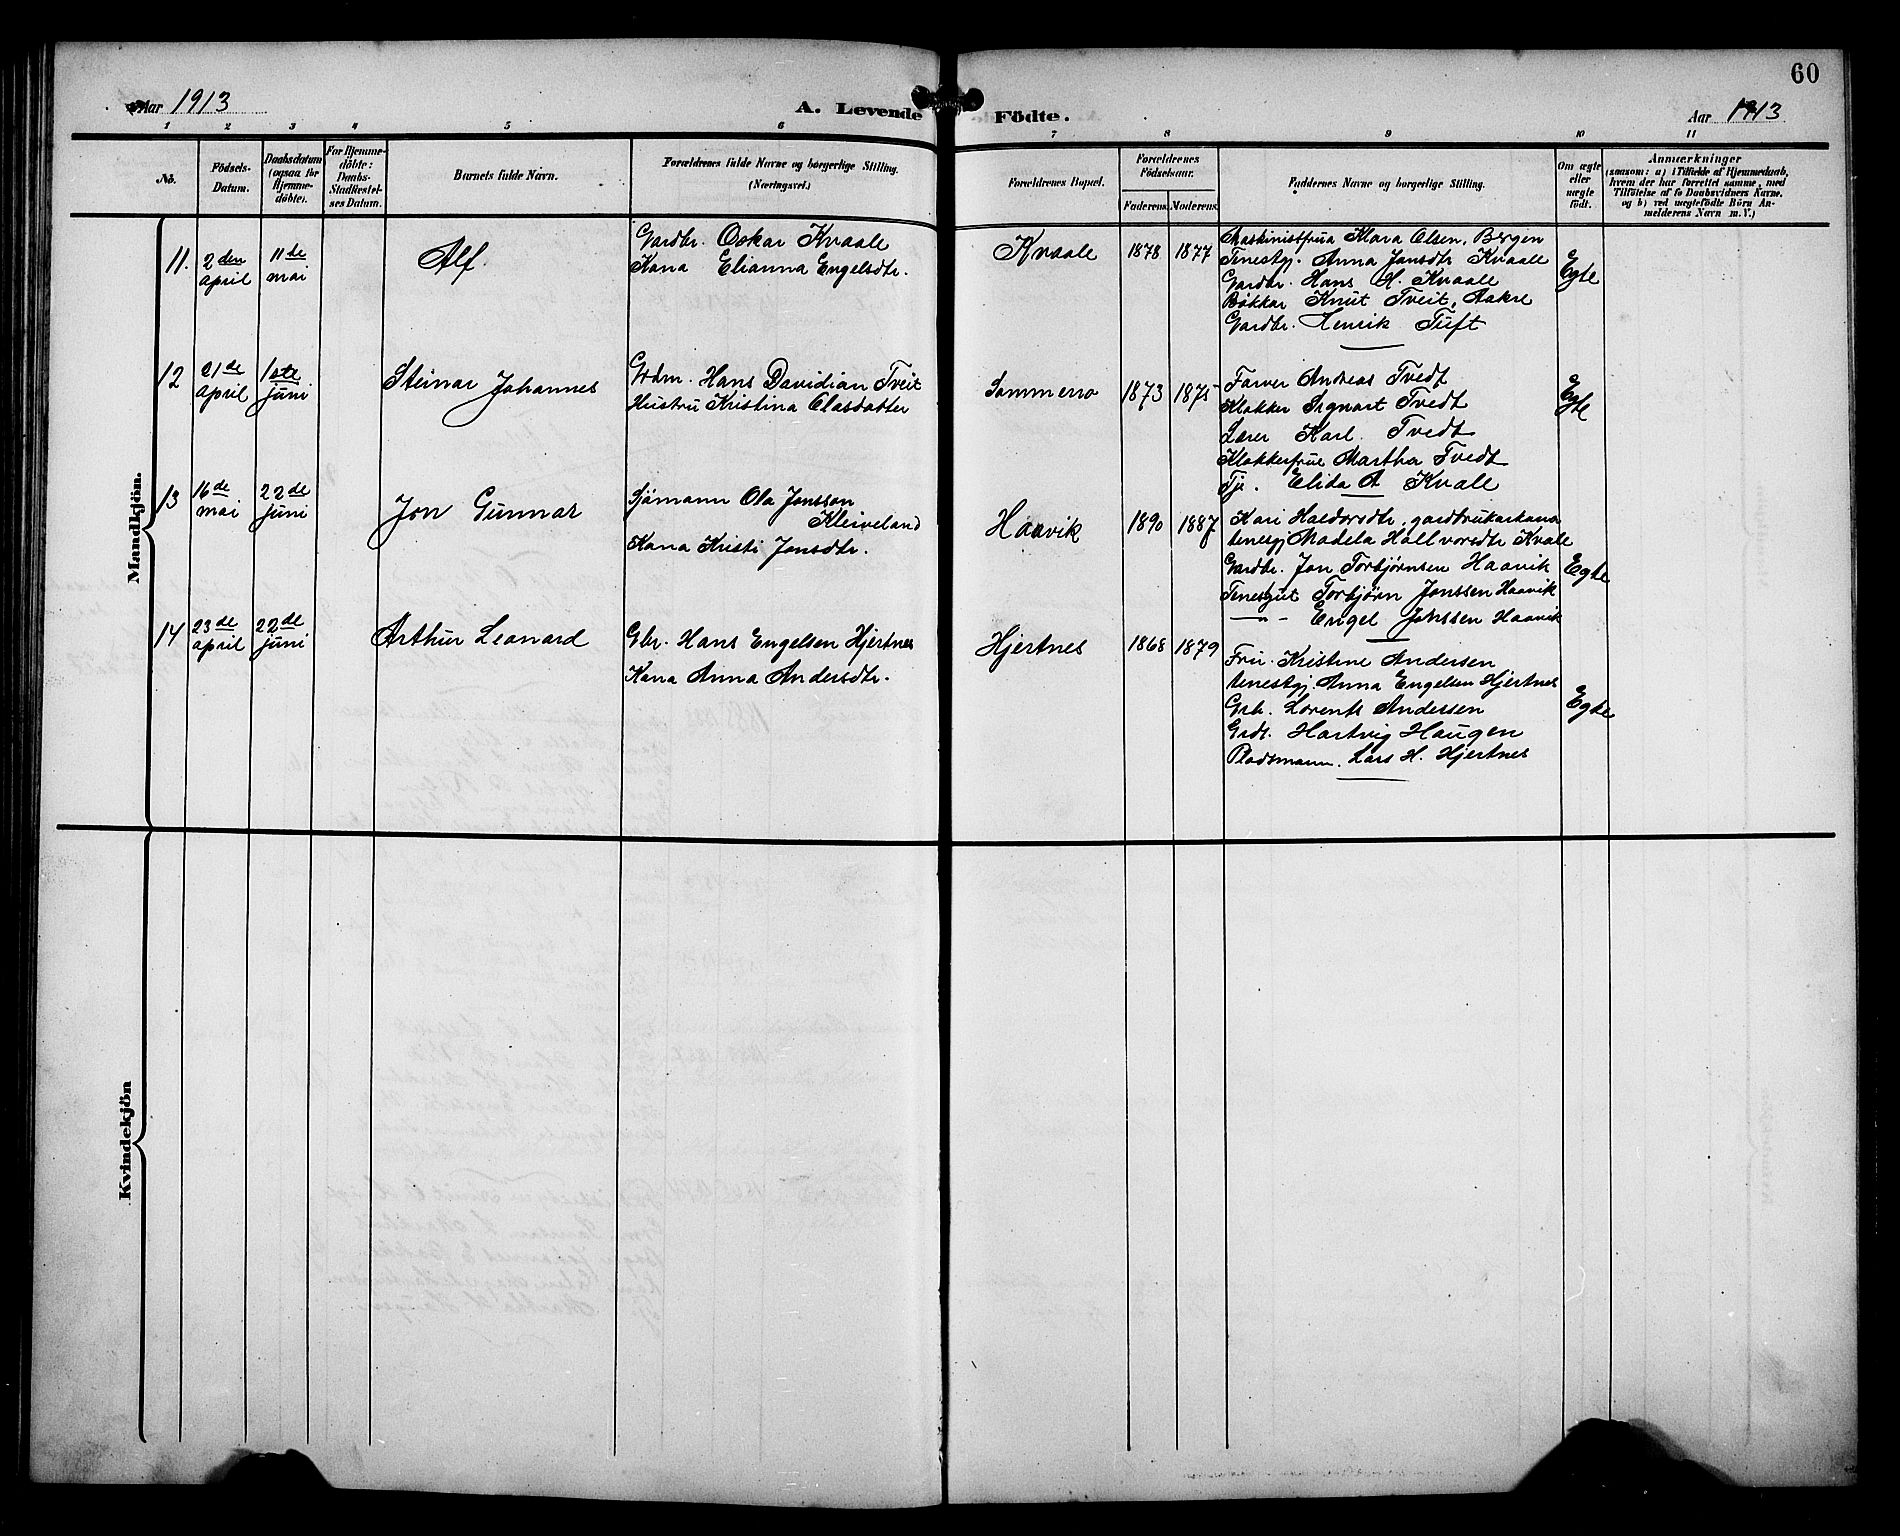 60
Aar 1913
A. Levende Födte.
Aar 1913
1 2 3 4 5 6 7 8 9 10 11
No.
Födsels-
Datum.
Daabsdatum
(ogsaa for
Hjemme-
döbte).
For Hjemme-
döbte:
Daabs-
Stadfæstel-
ses Datum.
Barnets fulde Navn.
Forældrenes fulde Navne og borgerlige Stilling.
(Næringsvei.)
Forældrenes Bopæl.
Forældrenes
Födselsaar.
Faderens. Moderens.
Faddernes Navne og borgerlige Stilling.
Om ægte
eller
uægte
födt.
Anmærkninger
(saasom: a) i Tilfælde af Hjemmedaab,
hvem der har forrettet samme, med
Tilföielse af to Daabsvidners Navne.
og b) ved uægtefödte Börn An-
melderens Navn m. V.)
Mandkjön.
11. 2den april 11te mai Alf. Gardbr. Oskar Kvaale
Kona Elianna Engelsdtr.
Kvaale 1878 1877
Maskinistfrua Klara Olsen, Bergen
Tenestgj. Anna Jonsdtr Kvaale
Gardbr. Hans H. Kvaale
Bøkkar Knut Tveit, Aakre
Gardbr. Henrik Tuft
Egte
12 21de april 1ste juni Steinar Johannes Grdm. Hans Davidian Tveit
Hustru Kristina Olasdatter
Sommerro 1873 1875
Farver Andreas Tvedt
Klokker Sigvart Tvedt
Lærer Karl. Tvedt
Klokkerfrue Martha Tvedt
Tj. Elida A Kvale
Egte
13 16de mai 22de juni Jon Gunnar Sjømann Ola Jonsson
Kleiveland
Kona Kristi Jonsdtr.
Haavik 1890 1887
Kari Haldorsdtr, gardbrukarkona
tenesgj Madela Hallvorsdtr Kvale
Gardbr. Jon Torbjørnsen Haavik
Tenesgut Torbjørn Jonssen Haavik
— " - Engel Johssen Haavik
Egte
14 23de april 22de juni Arthur Leonard Gbr. Hans Engelsen Hjertnes
Kona Anna Andersdtr.
Hjertnes 1868 1879
Fru. Kristine Andersen
tenestgj. Anna Engelsen Hjertnes
Grb. Lorents Andersen
Grdr. Hartvig Haugen
Pladsmann. Lars H. Hjertnes
Egte
Kvindekjön